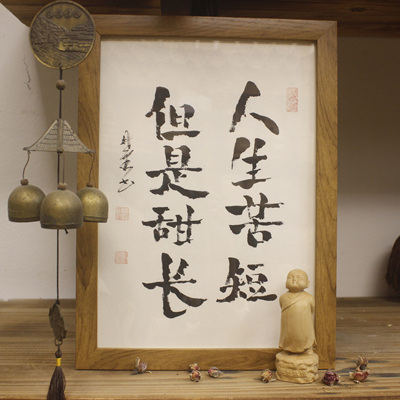 人生苦短
但是甜长